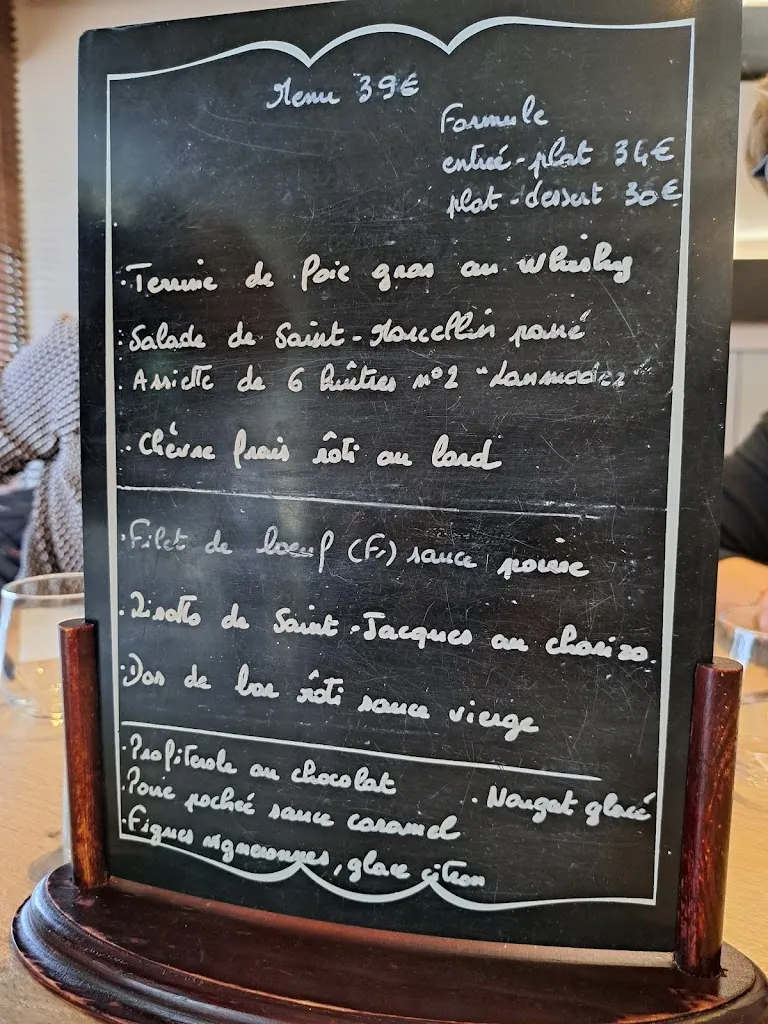 Menu 39€
Formule
entrée-plat 34€
plat-dessert 30€
· Terrine de foie gras au whisky
· Salade de Saint-Marcellin pané
· Assiette de 6 huîtres n°2 "Lanmodez"
· Chèvre frais rôti au lard
· Filet de boeuf (Fr) sauce poivre
· Risotto de Saint-Jacques au chorizo.
· Dos de bar rôti sauce vierge
· Profiterole au chocolat
· Nougat glacé
· Poire pochée sauce caramel
· Figues vigneronnes, glace citron